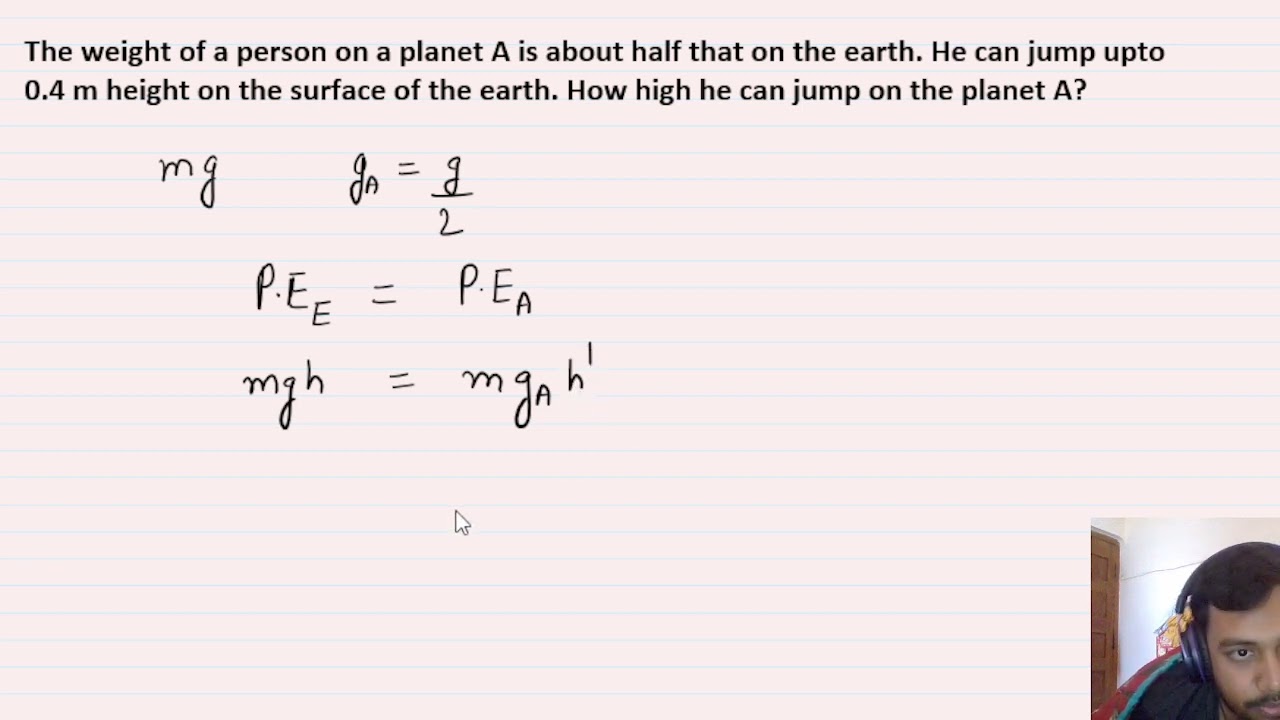 The weight of a person on a planet A is about half that on the earth. He can jump upto
0.4 m height on the surface of the earth. How high he can jump on the planet A?
mg g_A = g/2
P.E_E = P.E_A
mgh = mg_A h'